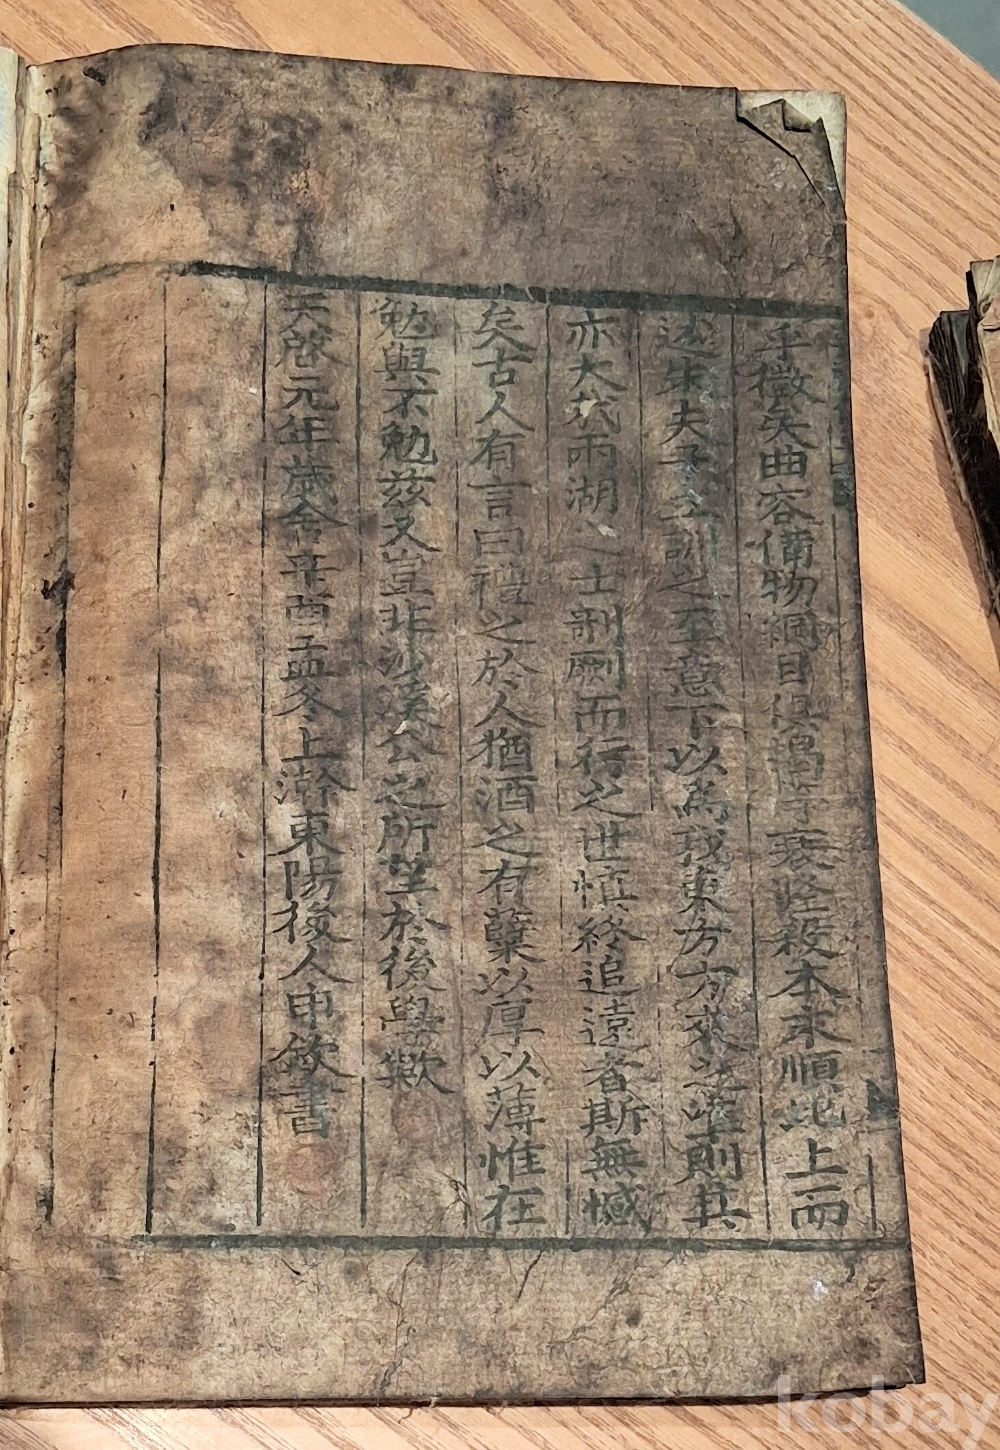 乎微矣曲容備物綱目俱
衰隆殺本末順比上而
述朱夫子立訓之至意下以爲我東方方來之嚆則其
亦大哉兩湖之士剞劂而行之世愼終追遠者斯無憾
矣古人有言曰禮之於人猶酒之有蘖以厚以薄惟在
勉與不勉玆又豈非沙溪公之所望於後學歟
天啓元年歲舍辛酉孟冬上澣東陽後人申欽書
kobay